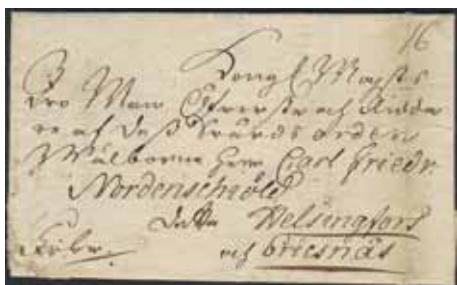 16
Kongl Majsts
Tro Man Öfwerste och Ridda
re af Deß Swärds orden
Wälborne Herr Carl Friedr.
Nordenschiöld
Helsingfors
och Friesnäs